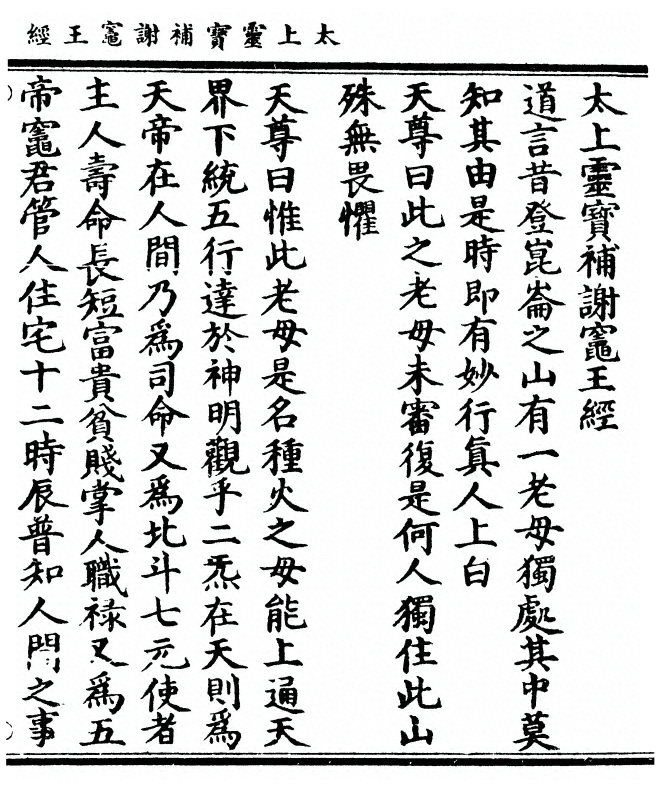 太上靈寶補謝竈王經
太上靈寶補謝竈王經
道言昔登崑崙之山有一老母獨處其中莫
知其由是時即有妙行眞人上白
天尊曰此之老母未審復是何人獨住此山
殊無畏懼
天尊曰惟此老母是名種火之母能上通天
界下統五行達於神明觀乎二炁在天則爲
天帝在人間乃爲司命又爲北斗七元使者
主人壽命長短富貴貧賤掌人職祿又爲五
帝竈君管人住宅十二時辰普知人間之事